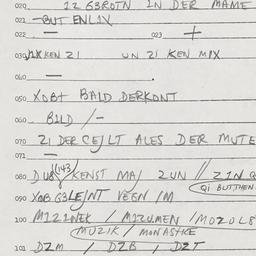 020. 12 G3ROTN IN DER MAME
021. -BUT ENLIX
022. — 023. +
030. KEN ZI UN ZI KEN MIX
040. —
050. XOB+ BALD DERKONT
060. BILD /-
070 ZI DERCEJLT ALES DER MUTE
071 —
080 DUB (143) KENST MAJ ZUN // ZIN
QI BUTTHEN
090 XOB G3LEJNT VEGN IM
100 MIZINEK / MIZUMEN / MOZOL8
MUZIK / MONASTKE
101 DZM / DZB / DZT